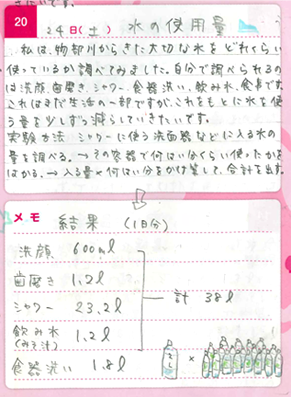 20
24日(土) 水の使用量
私は、物部川からきた大切な水をどれくらい
使っているか調べてみました。自分で調べられるの
は洗顔、歯磨き、シャワー、食器洗い、飲み水、食長です。
これはまだ生活の一部ですが、これをもとに水を使
う量を少しずつ減らしていきたいです。
実験方法 シャワーに使う洗面器などに入る水の
量を調べる。→その容器で何はい分くらい使ったかを
はかる。→入る量×何はい分をかけ算して、合計を出す。
メモ 結果 (1日分)
洗顔 600ml
歯磨き 1.2l
シャワー 23.2l
計 38l
飲み水 1.2l
(みそ汁)
食器洗い 1.8l
×